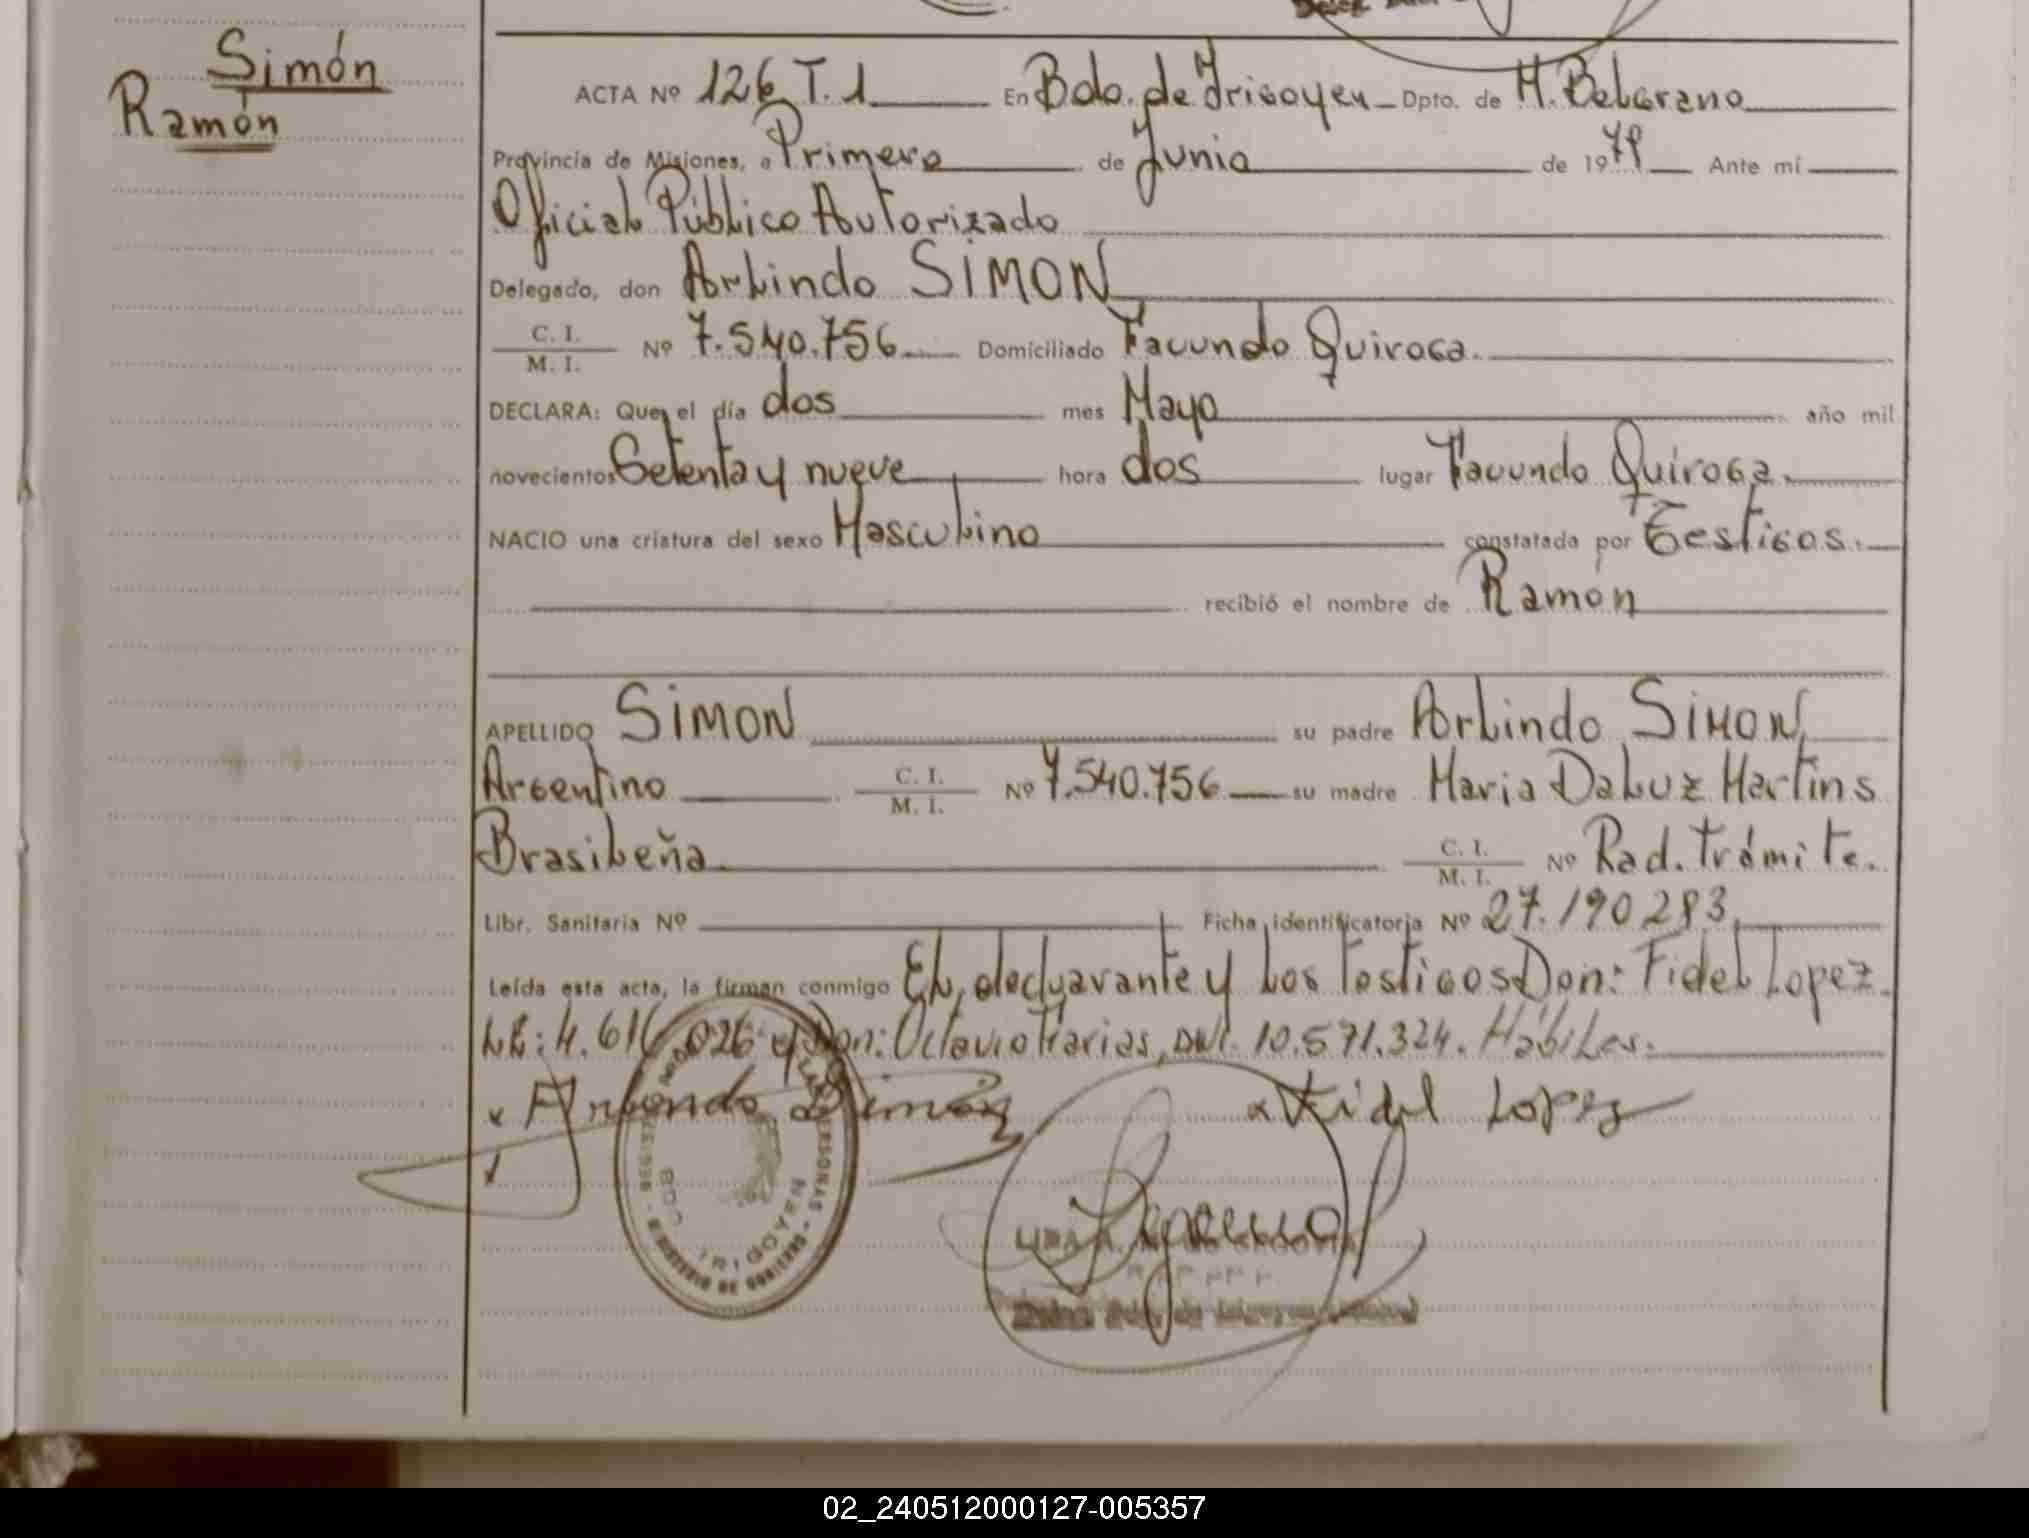 Simón
Ramón
ACTA Nº 126 T. 1 En Bdo. de Irigoyen Dpto. de M. Belgrano
Provincia de Misiones, a Primero de Junio de 1979 Ante mí
Oficial Público Autorizado
Delegado, don Arlindo SIMON
C. I.
M. I. Nº 7.540.756 Domiciliado Facundo Quiroga.
DECLARA: Que el día dos mes Mayo año mil
novecientos Setenta y nueve hora dos lugar Facundo Quiroga.
NACIO una criatura del sexo Masculino constatada por Testigos.
recibió el nombre de Ramón
APELLIDO SIMON su padre Arlindo SIMON,
Argentino C. I. M. I. Nº 7.540.756 su madre Maria Daluz Martins
Brasileña C. I. M. I. Nº Rad. Trámite.
Libr. Sanitaria Nº Ficha identificatoria Nº 27.190283
Leída esta acta, la firman conmigo El declarante y los testigos Don: Fidel Lopez.
LE: 4.616.026 y Don: Octavio Farias, DNI. 10.571.324. Hábiles.
x Simón x Fidel Lopez
PERSONAS
BDO. IRIGOYEN
MINISTERIO DE GOBIERNO
02_240512000127-005357